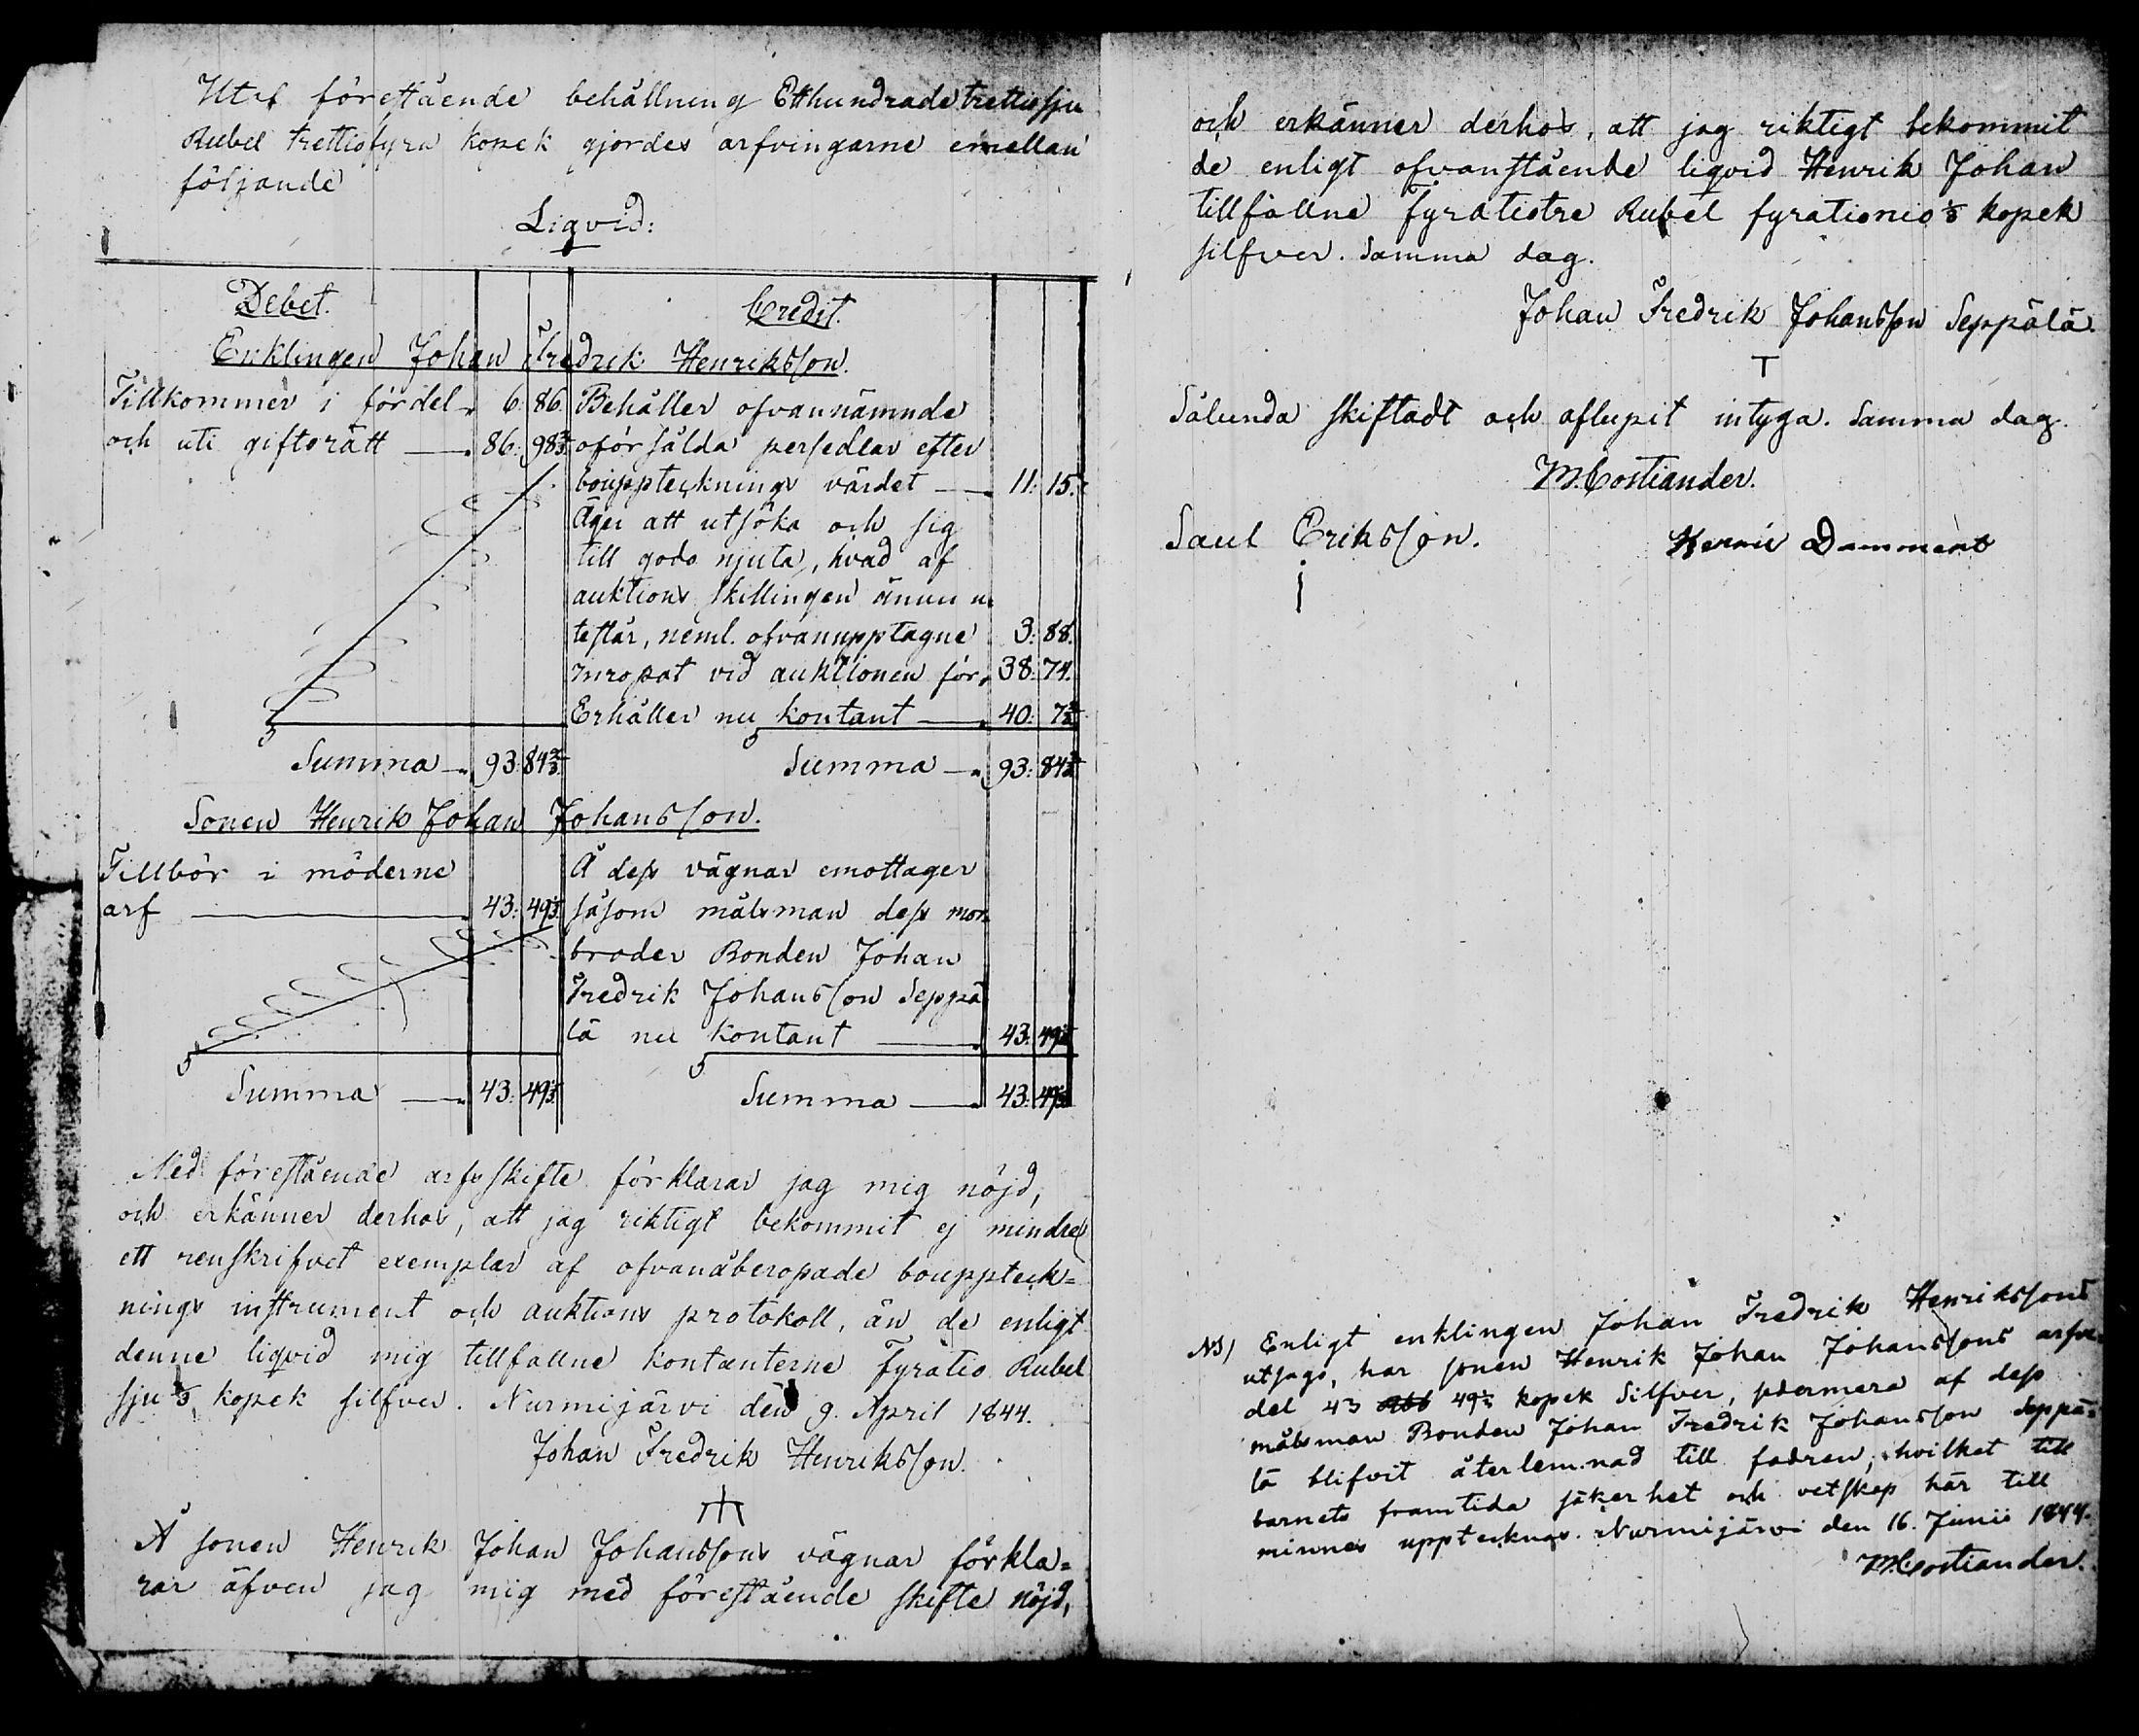 Utaf föreståendé behållning Etthundrade trettiosju
Rubel trettiofyra kopek gjordes arfvingarne emellan
följande
Liqvid:
Debet. Credit.
Enklingen Johan Fredrik Henriksson.
Tillkommer i fördel 6. 86. Behåller ofvannämnde
och uti giftorätt 86. 98 2/3 oförsålda persedlar efter
bouppteckningsvärdet 11: 15.
Äger att utsöka och sig
till godo njuta, hvad af
auktions skillingen ännu u
testår, neml. ofvanupptagne 3: 88.
Inropat vid auktionen för 38: 74.
Erhåller nu kontant 40: 7 2/3
Summa 93: 84 2/3 Summa 93: 84 2/3
Sonen Henrik Johan Johansson.
Tillbör i möderne Å dess vägnar emottager
arf 43: 49 1/3 såsom målsman dess mor
broder Bonden Johan
Fredrik Johansson Seppä
lä nu kontant 43: 49 1/3
Summa 43: 49 1/3 Summa 43: 49 1/3
Med förestående arfsskifte förklarar jag mig nöjd,
och erkänner derhos, att jag riktigt bekommit ej mindre
ett renskrifvet exemplar af ofvanåberopade bouppteck=
nings instrument och auktions protokoll, än de enligt
denne liqvid mig tillfallne kontanterne Fyratio Rubel
sju 2/3 kopek silfver. Nurmijärvi den 9. April 1844.
Johan Fredrik Henriksson.
Å sonen Henrik Johan Johanssons vägnar förkla=
rar äfven jag mig med förestående skifte nöjd,
och erkänner derhos, att jag riktigt bekommit
de enligt ofvanstående liqvid Henrik Johan
tillfallne fyratiotre Rubel fyrationio 1/3 kopek
silfver. Samma dag.
Johan Fredrik Johansson Seppälä.
Sålunda skiftadt och aflupit intyga. Samma dag.
M. Costiander.
Saul Eriksson. Damment
NB) Enligt enklingen Johan Fredrik Henrikssons
utsago, har sonen Henrik Johan Johanssons arfve
del 43 Rbl 49 1/3 kopek Silfver, sedermera af dess
målsman Bonden Johan Fredrik Johansson Seppä=
lä blifvit återlemnad till fadren, hvilket till
barnets framtida säkerhet och vetskap här till
minnes upptecknas. Nurmijärvi den 16. Junii 1844.
M. Costiander.